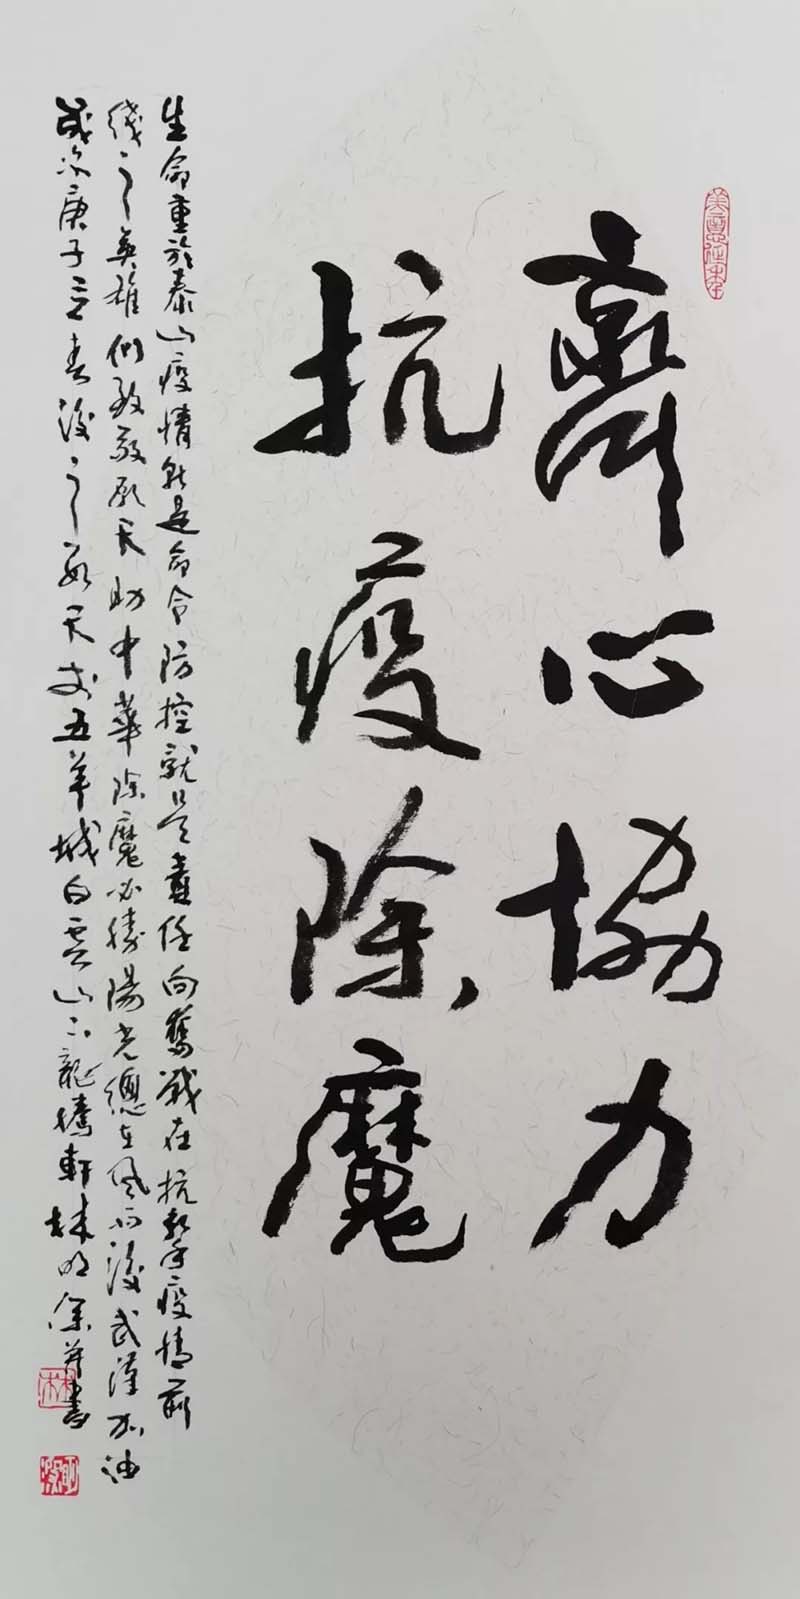 齊心協力
抗疫除魔
生命重於泰山疫情就是命令防控就是責任向奮戰在抗擊疫情前
綫之英雄們致敬願天助中華除魔必勝陽光總在風雨後武漢加油
歲次庚子立春後之數天於五羊城白雲山下龍騰軒林明保并書